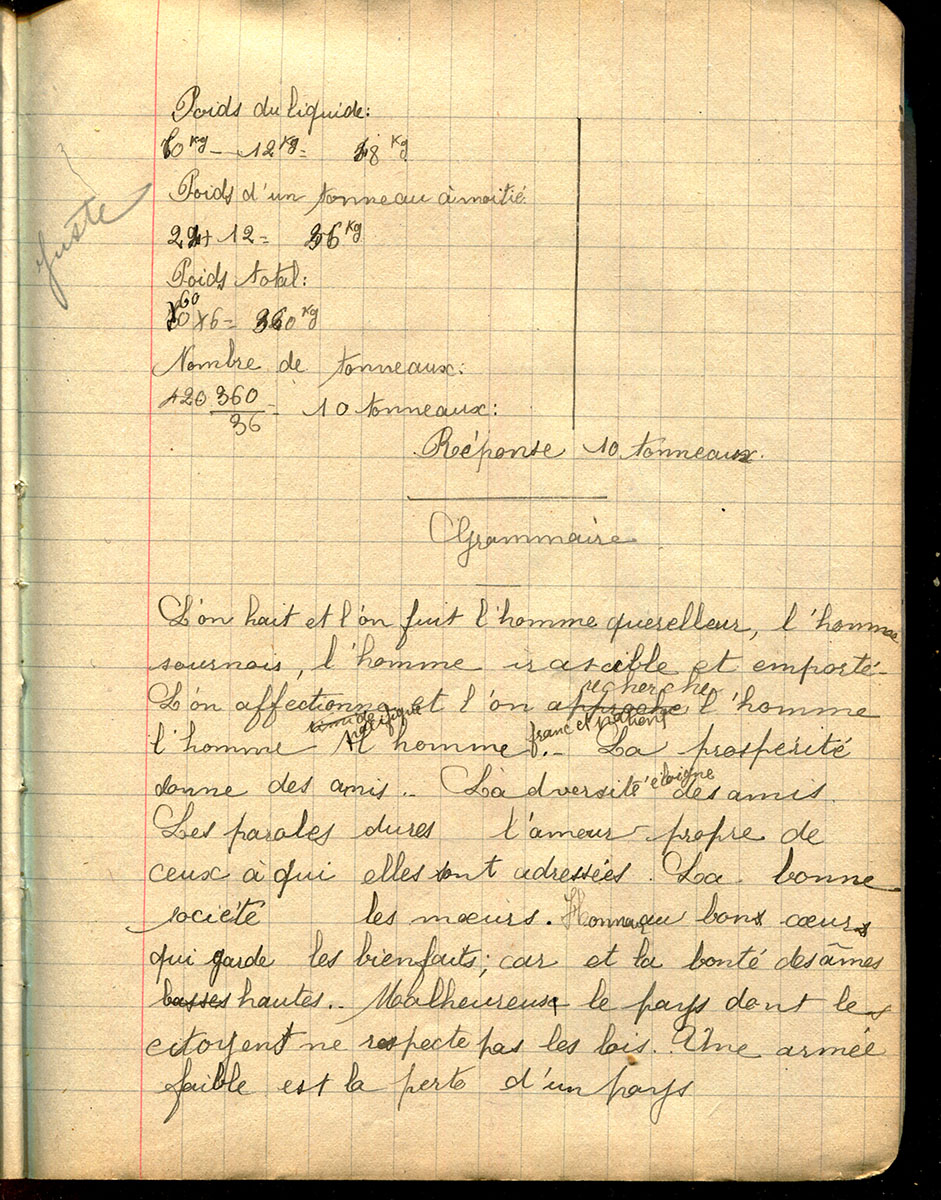 Poids du liquide:
60 Kg - 12 Kg = 48 Kg
Poids d'un tonneau à moitié
24 + 12 = 36 Kg
juste
Poids total:
60
x6 = 360 Kg
Nombre de tonneaux:
420 360/36 = 10 tonneaux:
Réponse 10 tonneaux.
Grammaire
L'on hait et l'on fuit l'homme querelleur, l'homme
sournois, l'homme irascible et emporté-
recherche
L'on affectionne et l'on approche l'homme
pacifique franc et patient
l'homme l'homme .. La prospérité
éloigne
donne des amis .. L'adversité des amis.
Les paroles dures l'amour-propre de
ceux à qui elles sont adressées. La bonne
société les mœurs. Honneur au bons cœurs
qui garde les bienfaits; car et la bonté des âmes
basses hautes.. Malheureux le pays dont les
citoyent ne respecte pas les lois. Une armée
faible est la perte d'un pays